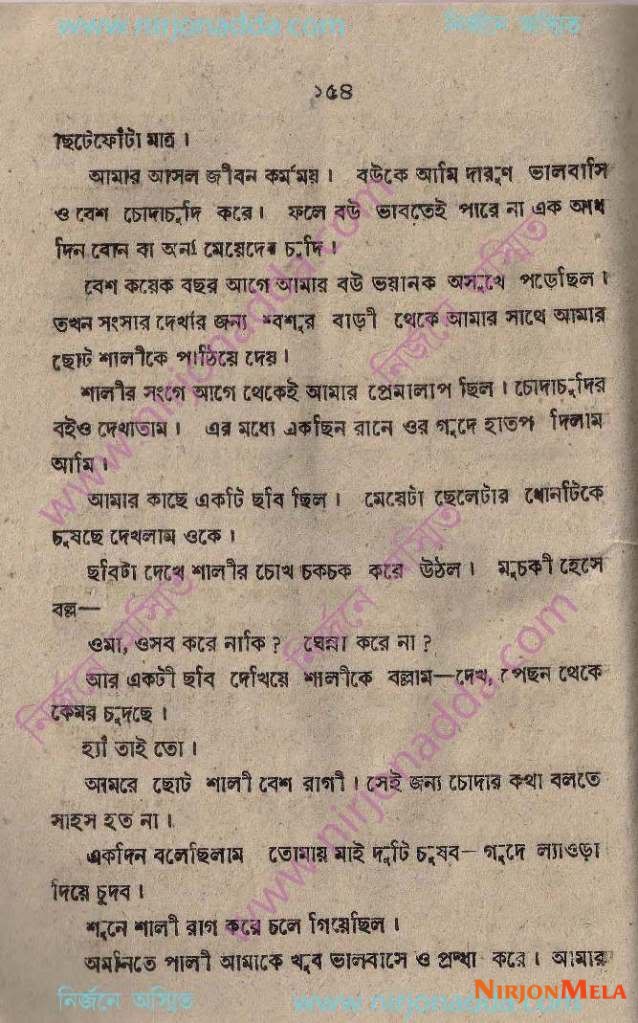 www.nirjonadda.com নির্জনে অস্মিত
১৫৪
ছিটেফোঁটা মাত্র।
আমার আসল জীবন কর্মময়। বউকে আমি দারুণ ভালবাসি
ও বেশ চোদাচুদি করে। ফলে বউ ভাবতেই পারে না এক আধ
দিন বোন বা অন্য মেয়েদের চুদি।
বেশ কয়েক বছর আগে আমার বউ ভয়ানক অসুখে পড়েছিল।
তখন সংসার দেখার জন্য শ্বশুর বাড়ী থেকে আমার সাথে আমার
ছোট শালীকে পাঠিয়ে দেয়।
শালীর সংগে আগে থেকেই আমার প্রেমালাপ ছিল। চোদাচুদির
বইও দেখাতাম। এর মধ্যে একছিন রানে ওর গুদে হাতপ দিলাম
আমি।
আমার কাছে একটি ছবি ছিল। মেয়েটা ছেলেটার ধোনটিকে
চুষছে দেখলাম ওকে।
ছবিটা দেখে শালীর চোখ চকচক করে উঠল। মুচকী হেসে
বল্ল—
ওমা, ওসব করে নাকি? ঘেন্না করে না?
আর একটী ছবি দেখিয়ে শালীকে বল্লাম—দেখ, পেছন থেকে
কেমর চুদছে।
হ্যাঁ তাই তো।
আমরে ছোট শালী বেশ রাগী। সেই জন্য চোদার কথা বলতে
সাহস হত না।
একদিন বলেছিলাম তোমায় মাই দুটি চুষব—গুদে ল্যাওড়া
দিয়ে চুদব।
শুনে শালী রাগ করে চলে গিয়েছিল।
অমনিতে পালী আমাকে খুব ভালবাসে ও শ্রদ্ধা করে। আমার
নির্জনে অস্মিত www.nirjonadda.com
NIRJONMELA